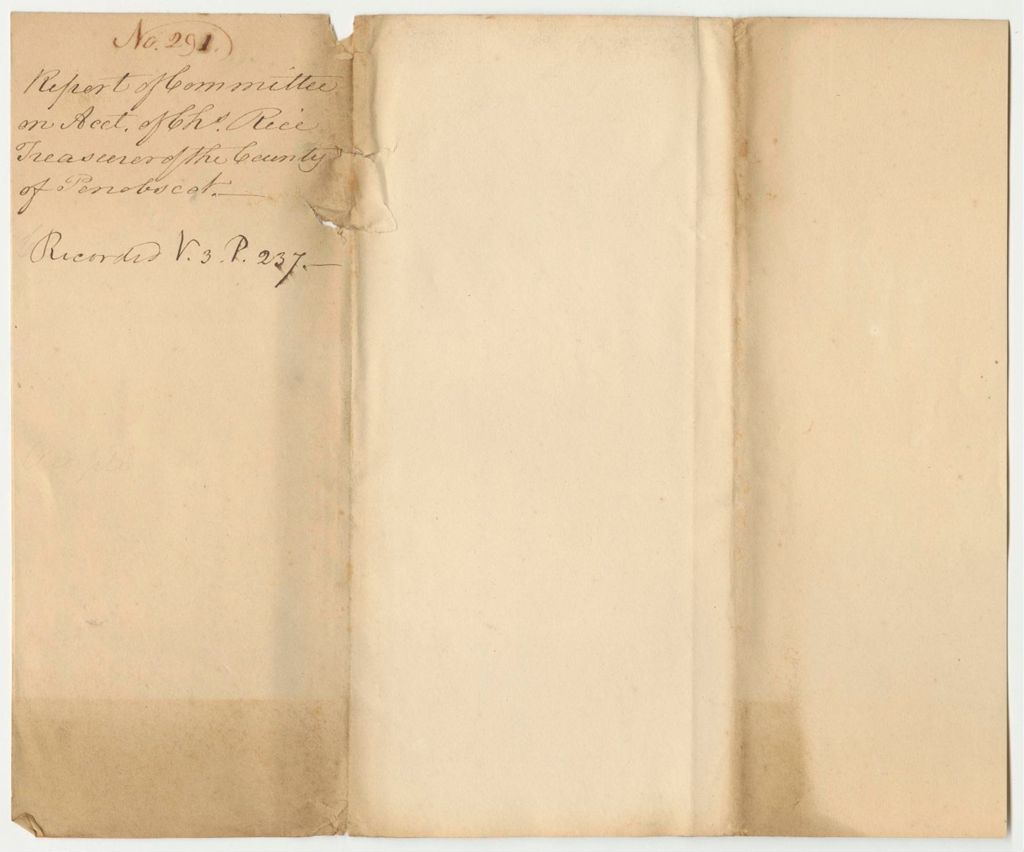 No. 291.)
Report of Committee
on Acct. of Chs. Rice
Treasurer of the County
of Penobscot.—
Recorded V. 3. P. 237.—